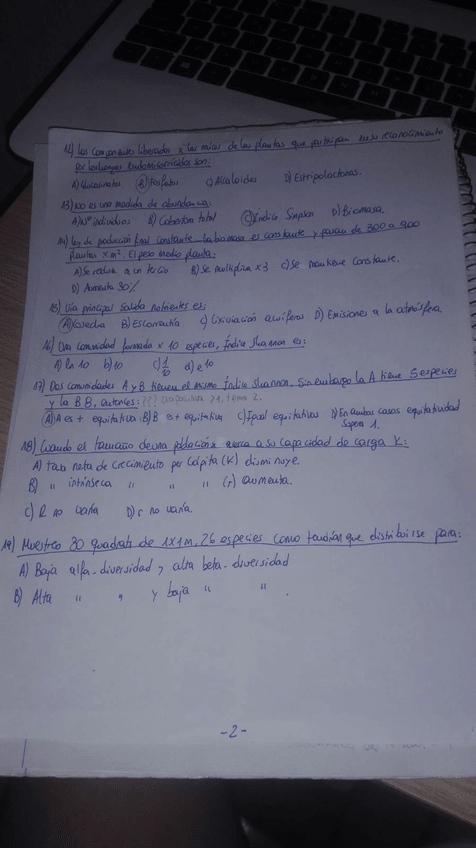 12) Los componentes liberados x las raíces de las plantas que participan en su reconocimiento
por los hongos Endomicorrícidos son:
A) Glucosinatos B) Fosfatos C) Alcaloides D) Estripolactonas.
13) No es una medida de abundancia:
A) Nº individuos B) Cobertura total C) Índice Simpson D) Biomasa.
14) Ley de producción final constante. La biomasa es constante y pasan de 300 a 900
plantas x m². El peso medio planta:
A) Se reduce a un tercio B) Se multiplica x3 C) Se mantiene constante.
D) Aumenta 30%
15) Vía principal salida nutrientes es:
A) Cosecha B) Escorrentía C) Lixiviación acuíferos D) Emisiones a la atmósfera
16) Una comunidad formada x 10 especies, Índice Shannon es:
A) ln 10 b) 10 C) 1/10 d) e^10
17) Dos comunidades A y B tienen el mismo Índice Shannon. Sin embargo la A tiene 5 especies
y la B 8, entonces: ??? Diapositiva 71, tema 2.
A) A es + equitativa B) B es + equitativa C) Igual equitativas D) En ambos casos equitatividad
supera 1.
18) Cuando el tamaño de una población se acerca a su capacidad de carga K:
A) tasa neta de crecimiento per cápita (R) disminuye.
B) " intrínseca " " " (r) aumenta.
C) R no varía D) r no varía.
19) Muestreo 30 quadrats de 1x1 m, 26 especies como tendrían que distribuirse para:
A) Baja alfa-diversidad y alta beta-diversidad
B) Alta " " y baja " " .
-2-